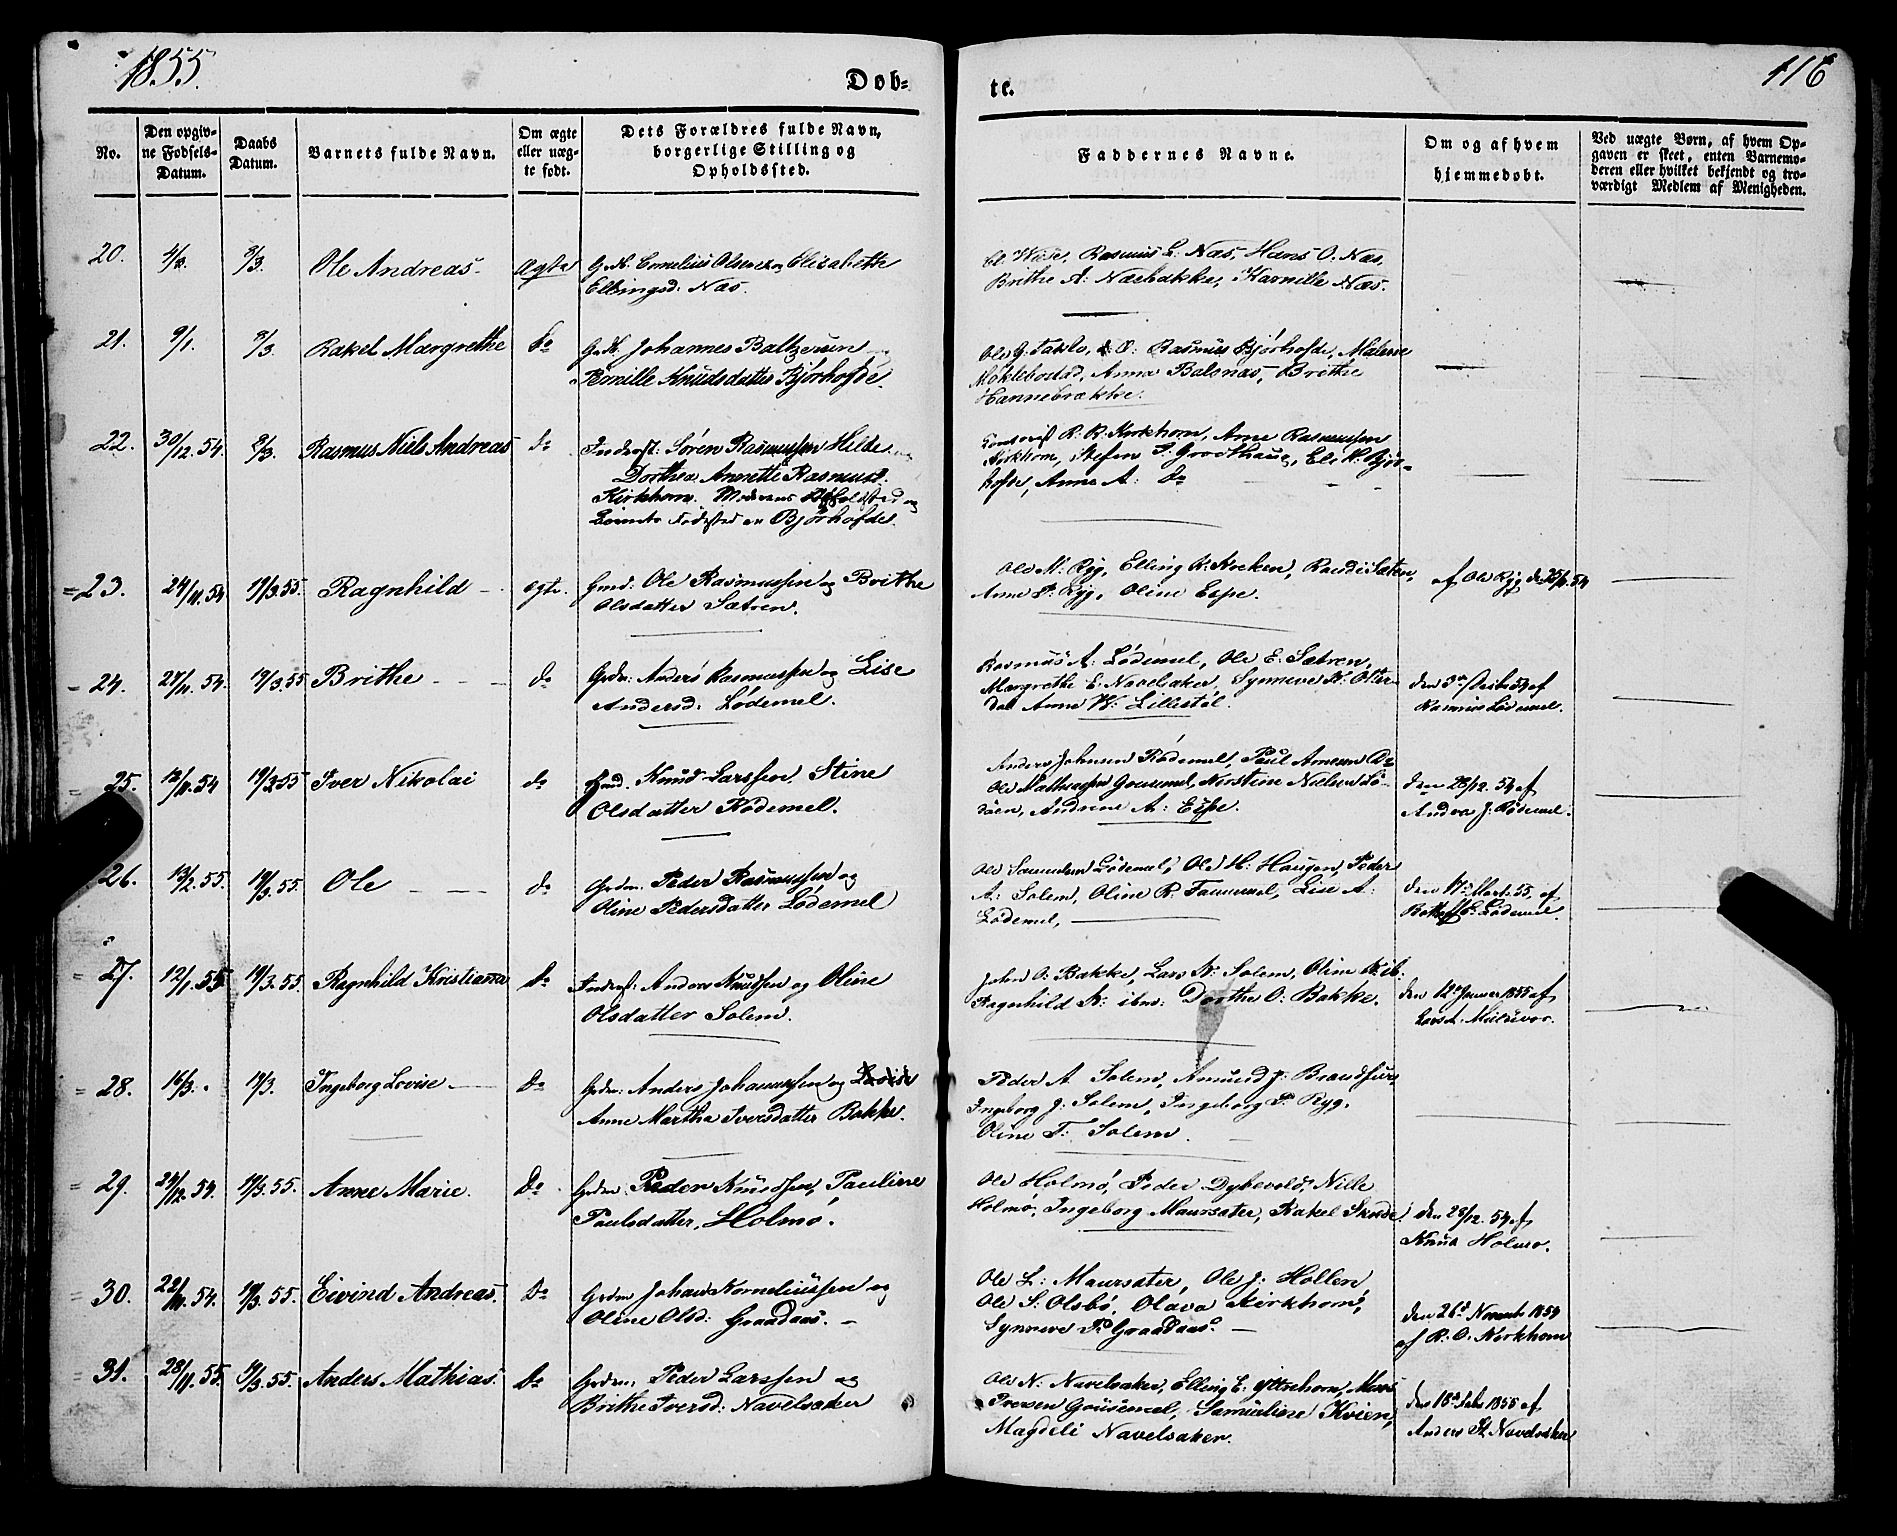 1855.
Dob=
te.
116
No.
Den opgiv-
ne Fødsels-
Datum.
Daabs
Datum.
Barnets fulde Navn.
Om ægte
eller uæg-
te født.
Dets Forældres fulde Navn,
borgerlige Stilling og
Opholdssted.
Faddernes Navne.
Om og af hvem
hjemmedøbt.
Ved uægte Børn, af hvem Op-
gaven er skeet, enten Barnemo-
deren eller hvilket bekjendt og tro-
værdigt Medlem af Menigheden.
20. 4/2. 8/3. Ole Andreas. Ægte Cornelius Olsen og Elisabeth
Ellingsd: Næs.
Rasmus L: Næs, Hans O: Næs,
Brithe A: Næsbakke, Karnille Næs.
21. 9/1. 8/3. Rakel Margrethe do Johannes Baltzersen
Pernille Knudsdatter Bjørhofde.
Ole G: Taklo, Rasmus Bjørhofde, Malene
Møklebostad, Anna Balsnæs, Brithe
Hannebrække.
22. 30/12. 54. 8/3. Rasmus Niels Andreas do Inderst: Søren Rasmussen Hilde og
Dorthea Annette Rasmusd.
Kirkhorn. Moderens Opholdsted og
Fødested er Bjørhofde.
R. R. Kirkhorn, Arne Rasmussen
Kirkhorn, Stefen S: Grodthaug, Eli K. Bjør-
hofde, Anna A: Do
23. 24/11. 54. 19/3. 55. Ragnhild ægte. Gmd: Ole Rasmussen og Brithe
Olsdatter Sætren.
Ole M: Ryg, Elling R: Areken, Randi Sætren,
Anne P: Ryg, Oline Espe.
af Ole Ryg d 25/11 54
24. 27/11. 54. 19/3. 55 Brithe do Grdm: Anders Rasmussen og Lise
Andersd: Lødemel.
Rasmus A: Lødemel, Ole E. Sætren,
Margrethe E: Navelsaker, Synneve N: Otter-
dal Anne W: Lillestøl.
den 3de af
Rasmus Lødemel.
25. 12/11. 54 19/3 55 Iver Nikolai do Knud Larssen, Stine
Olsdatter Rødemel.
Anders Johnsen Rødemel, Paul Arnesen Do
Ole Mathiassen Gousemel, Kerstine Nielsen Lø-
døen, Andrine A: Espe.
den 28/12. 54 af
Anders J: Rødemel.
26. 13/2. 55. 19/3. 55. Ole do Grdm. Peder Rasmussen og
Oline Pedersdatter Lødemel
Ole Lødemel, Ole H: Haugen, Peder
A: Solem, Oline R: Taucmel, Lise A:
Lødemel,
den Marts. 55, af
Lødemel.
27. 12/1. 55. 19/3. 55. Ragnhild Kristianna do Inderst: Anders Knudsen og Oline
Olsdatter Solem.
John O: Bakke, Lars K: Solem, Oline K: ib:
Ragnhild K: ibm: Dorthe O: Bakke.
den 12te Januar 1855 af
Lars A.
28. 16/3. 19/3. Ingeborg Lovise do Grdm: Anders Johannessen og
Anne Martha Iversdatter Bakke.
Peder A Solem, Amund J: Brandfure
Ingeborg J: Solem, Ingeborg P: Ryg,
Oline T: Solem.
29. 24/12. 54. 19/3. 55. Anne Marie. Do Grdm. Peder Knudsen, Pauline
Paulsdatter, Holmø.
Ole Holmø, Peder Dybevold, Nille
Holmø, Ingeborg Maursæter, Rakel Skude.
den 28/12. 54 af
Knud Holmø.
30. 22/11. 54. 19/3. 55. Eivind Andreas. Do Grdm Johan Korneliussen og
Oline Olsd: Graadaas.
Ole L: Maursæter, Ole J: Hollen
Ole S: Olsbø, Olava Kirkhorn,
Synneve P: Graadaas.
den 26de Novemb 1854
af R. O. Kirkhorn
31. 28/11. 55. 19/3. 55. Anders Mathias. Do Grdm: Peder Larssen og
Brithe Iversd: Navelsaker
Ole N: Navelsaker, Elling E: Yttrehorn, Mons
Gousemel, Samueline Kvien,
Magdeli Navelsaker.
den 18de Febr 1855 af
Anders St. Navelsaker